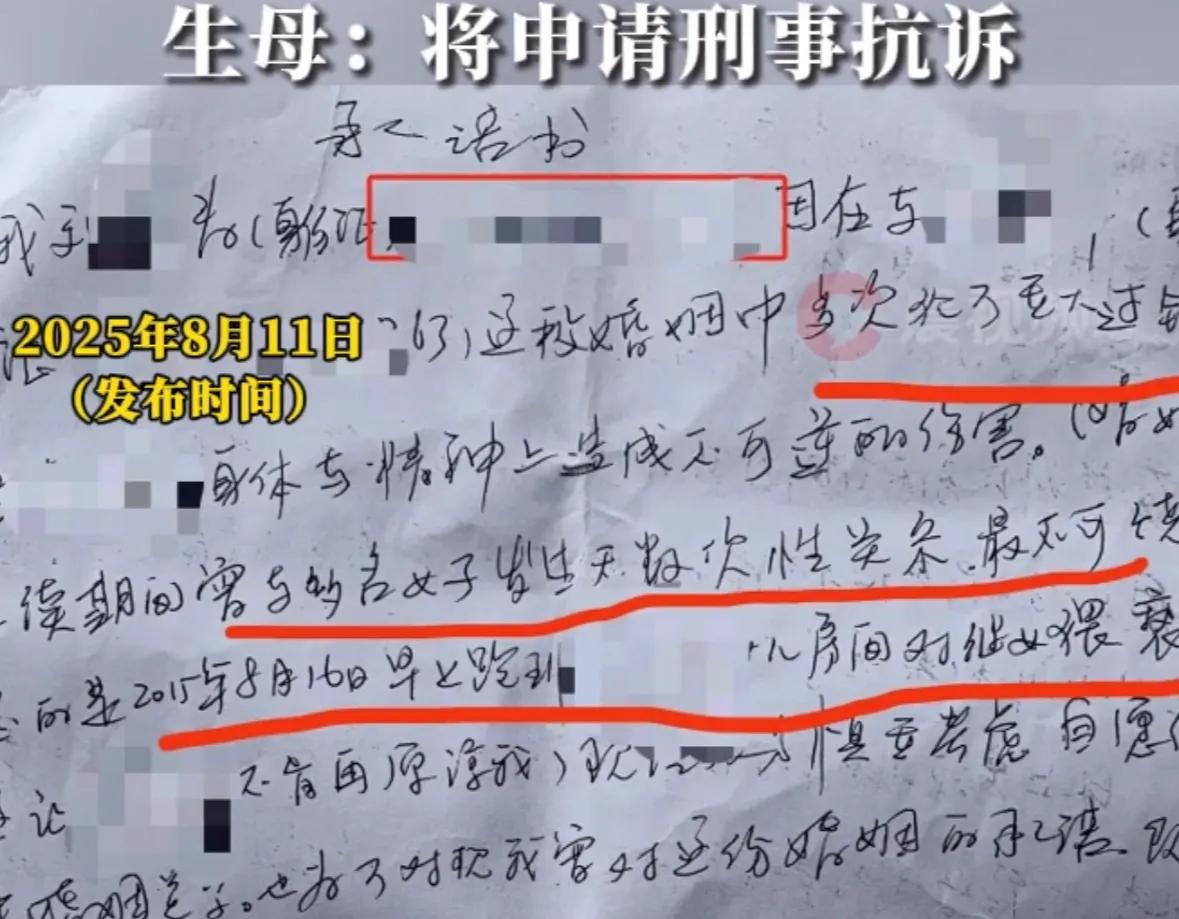 生母：将申请刑事抗诉
承诺书
我 为（身份证 因在与
2025年8月11日
（发布时间）
这段婚姻中多次犯下重大过错
身体与精神上造成不可逆的伤害。（婚姻
续期间曾与多名女子发生无数次性关系，最不可饶
的是2015年8月16日早上跑到 儿房间对继女猥亵
不肯再原谅我） 慎重考虑自愿
婚姻 。也为了对现我曾对这份婚姻的承诺